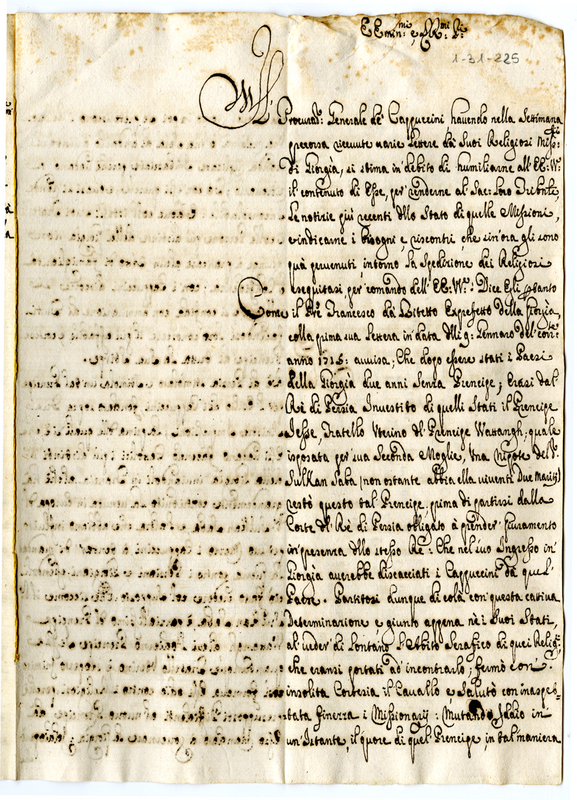 EEmin:mi e, RR:mi SS:ri
1-31-225
Il Procurat:r Generale de' Cappuccini havendo nella Settimana
presenza ricevute varie Lettere dai Suoi Religiosi Miss:rij
di Giorgia, si stima in debito di humiliarne all' EE: VV:
il contenuto di Esse, per renderne al Sac: loro Tribunle
le notizie più recenti dello Stato di quelle Missioni,
e indicarne i bisogni e, riscontri che sin'ora gli sono
quà pervenuti intorno la Spedizione dei Religiosi
eseguitasi, per comando dell' EE: VV: Dice Egli per tanto
Come il Pre Francesco da Bitetto Exprefetto della Giorgia,
colla prima sua Lettera in data delli 9: Gennaro del corr:te
anno 1715: avvisa; Che dopo essere stati i Paesi
della Giorgia due anni Senza Prencipe; Erasi dal
Rè di Persia Investito di quelli Stati il Prencipe
Iesse, Fratello Uterino del Prencipe Wattangh; quale
isposata per sua Seconda Moglie, Una Nipote del P.
Sulkan Saba (non ostante abbia ella viventi Due Mariti)
restò questo tal Prencipe, prima di partirsi dalla
Corte del Rè di Persia obligato à prender Giuramento
in presenza dello stesso Rè: Che nel suo Ingresso in
Giorgia averebbe discacciati i Cappuccini da quel
Paese. Partitosi dunque di colà con questa cativa
Determinazione e, giunto appena nè i Suoi Stati,
al veder di Lontano l'Abito Serafico di quei Relig:si
che eransi portati ad incontrarlo; fermò con
insolita Cortesia il Cavallo e, Salutò con inaspet-
tata finezza i Missionarij: Mutando Iddio in
un'Istante, il quore di quel Prencipe, in tal maniera